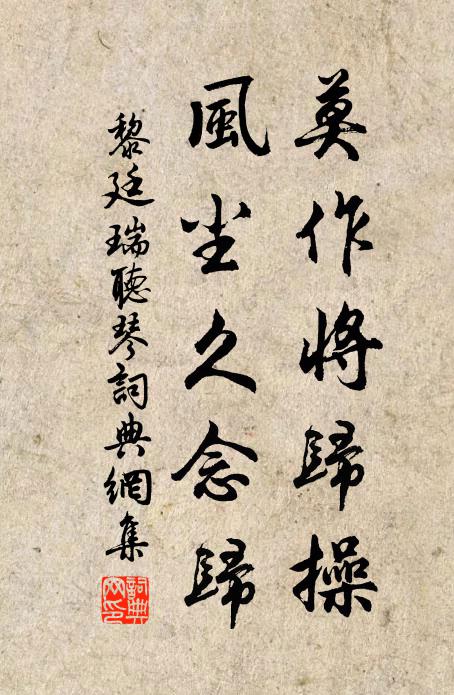 莫作將歸操
風塵久念歸
黎廷瑞聽琴詞典網集
詞典網印